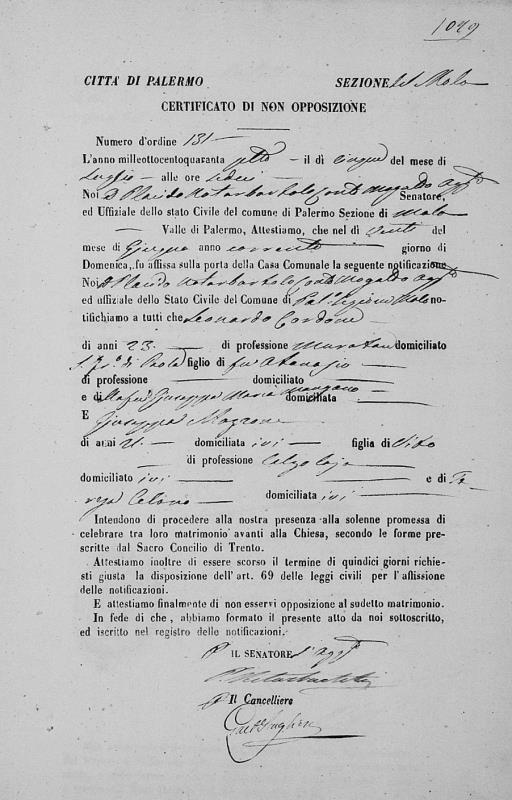 1049
CITTA' DI PALERMO SEZIONE del Molo
CERTIFICATO DI NON OPPOSIZIONE
Numero d'ordine 131
L'anno milleottocentoquaranta otto il dì cinque del mese di
Luglio alle ore sedici
Noi D. Placido Notarbartolo Agg.to Senatore,
ed Uffiziale dello stato Civile del comune di Palermo Sezione di Molo
Valle di Palermo, Attestiamo, che nel dì venti del
mese di Giugno anno corrente giorno di
Domenica, fu affissa sulla porta della Casa Comunale la seguente notificazione
Noi D. Placido Notarbartolo Agg.to
ed uffiziale dello Stato Civile del Comune di Pal. Sezione Molo no-
tifichiamo a tutti che Leonardo Cordone
di anni 23 di professione domiciliato
S. Fr. di Paola figlio di fu Atanagio
di professione domiciliato
e di Giuseppa Maria Mangano domiciliata
E
Giuseppa
di anni 21 domiciliata ivi figlia di Vito
di professione Calzolajo
domiciliato ivi e di Te-
resa domiciliata ivi
Intendono di procedere alla nostra presenza alla solenne promessa di
celebrare tra loro matrimonio avanti alla Chiesa, secondo le forme pre-
scritte dal Sacro Concilio di Trento.
Attestiamo inoltre di essere scorso il termine di quindici giorni richie-
sti giusta la disposizione dell'art. 69 delle leggi civili per l'affissione
delle notificazioni.
E attestiamo finalmente di non esservi opposizione al sudetto matrimonio.
In fede di che, abbiamo formato il presente atto da noi sottoscritto,
ed iscritto nel registro delle notificazioni.
P IL SENATORE Agg.to
P Il Cancelliere